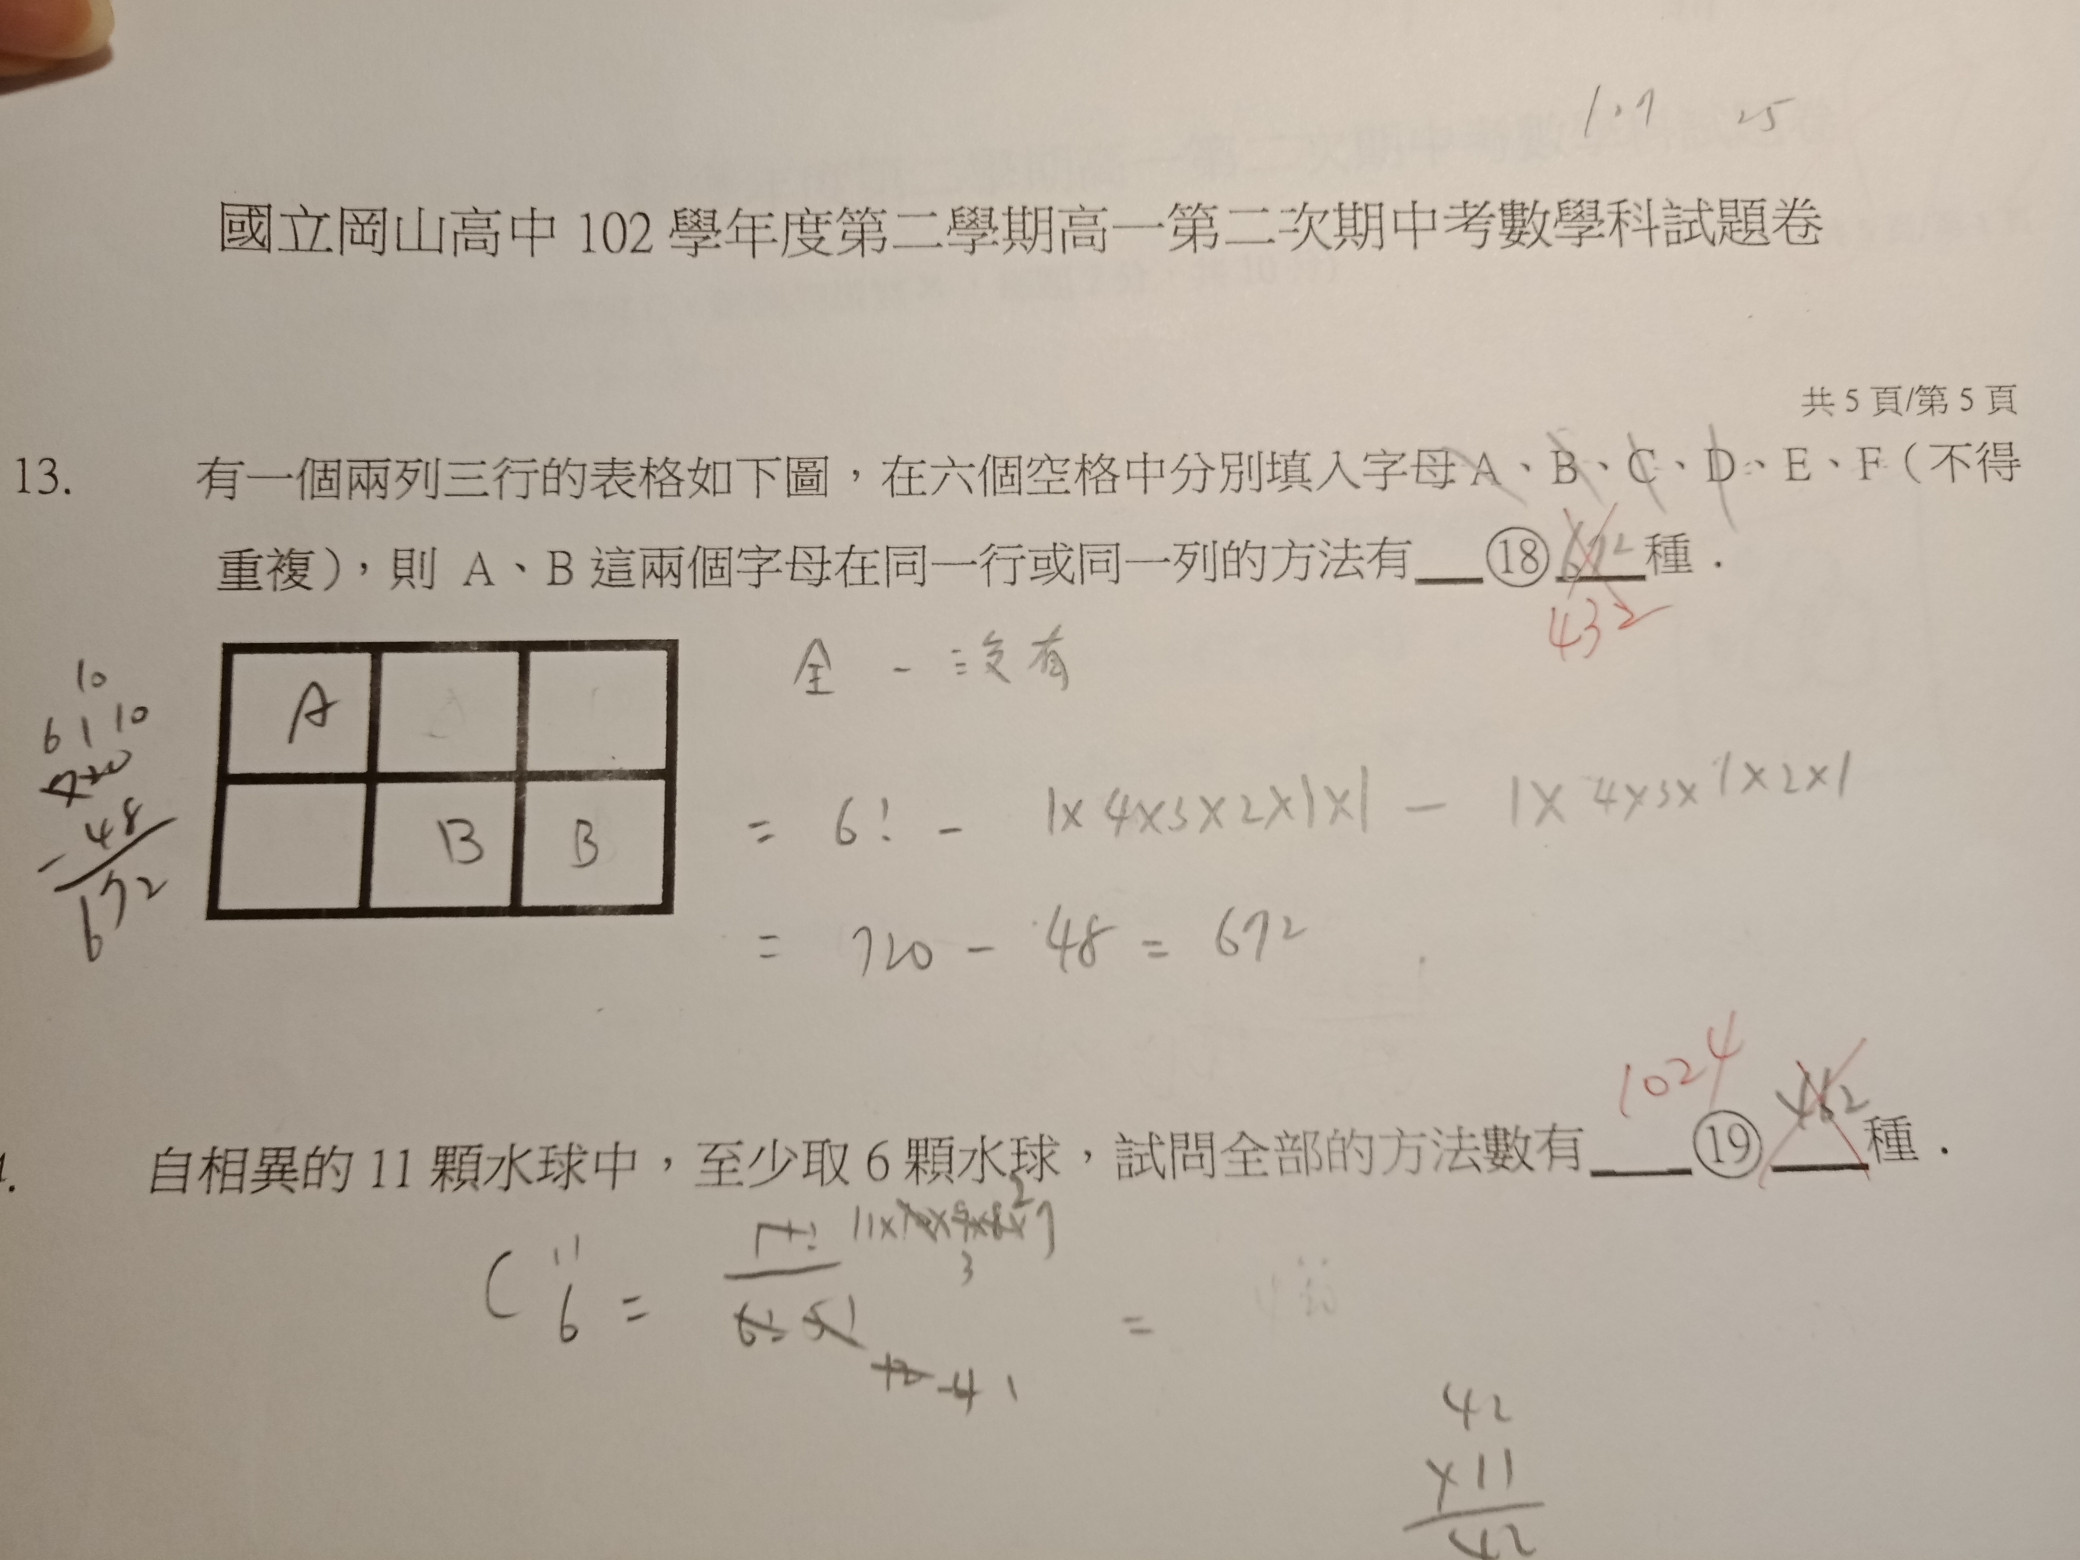 1.7 25
國立岡山高中 102 學年度第二學期高一第二次期中考數學科試題卷
共 5 頁/第 5 頁
13. 有一個兩列三行的表格如下圖，在六個空格中分別填入字母 A、B、C、D、E、F（不得
重複），則 A、B 這兩個字母在同一行或同一列的方法有 ⑱ 672 種．
432
全 - 沒有
10
6 1 10
720
- 48
672
A
B B
= 6! - 1×4×3×2×1×1 - 1×4×3×1×2×1
= 720 - 48 = 672
1024
自相異的 11 顆水球中，至少取 6 顆水球，試問全部的方法數有 ⑲ 462 種．
C 11 6 =
=
42
×11
42